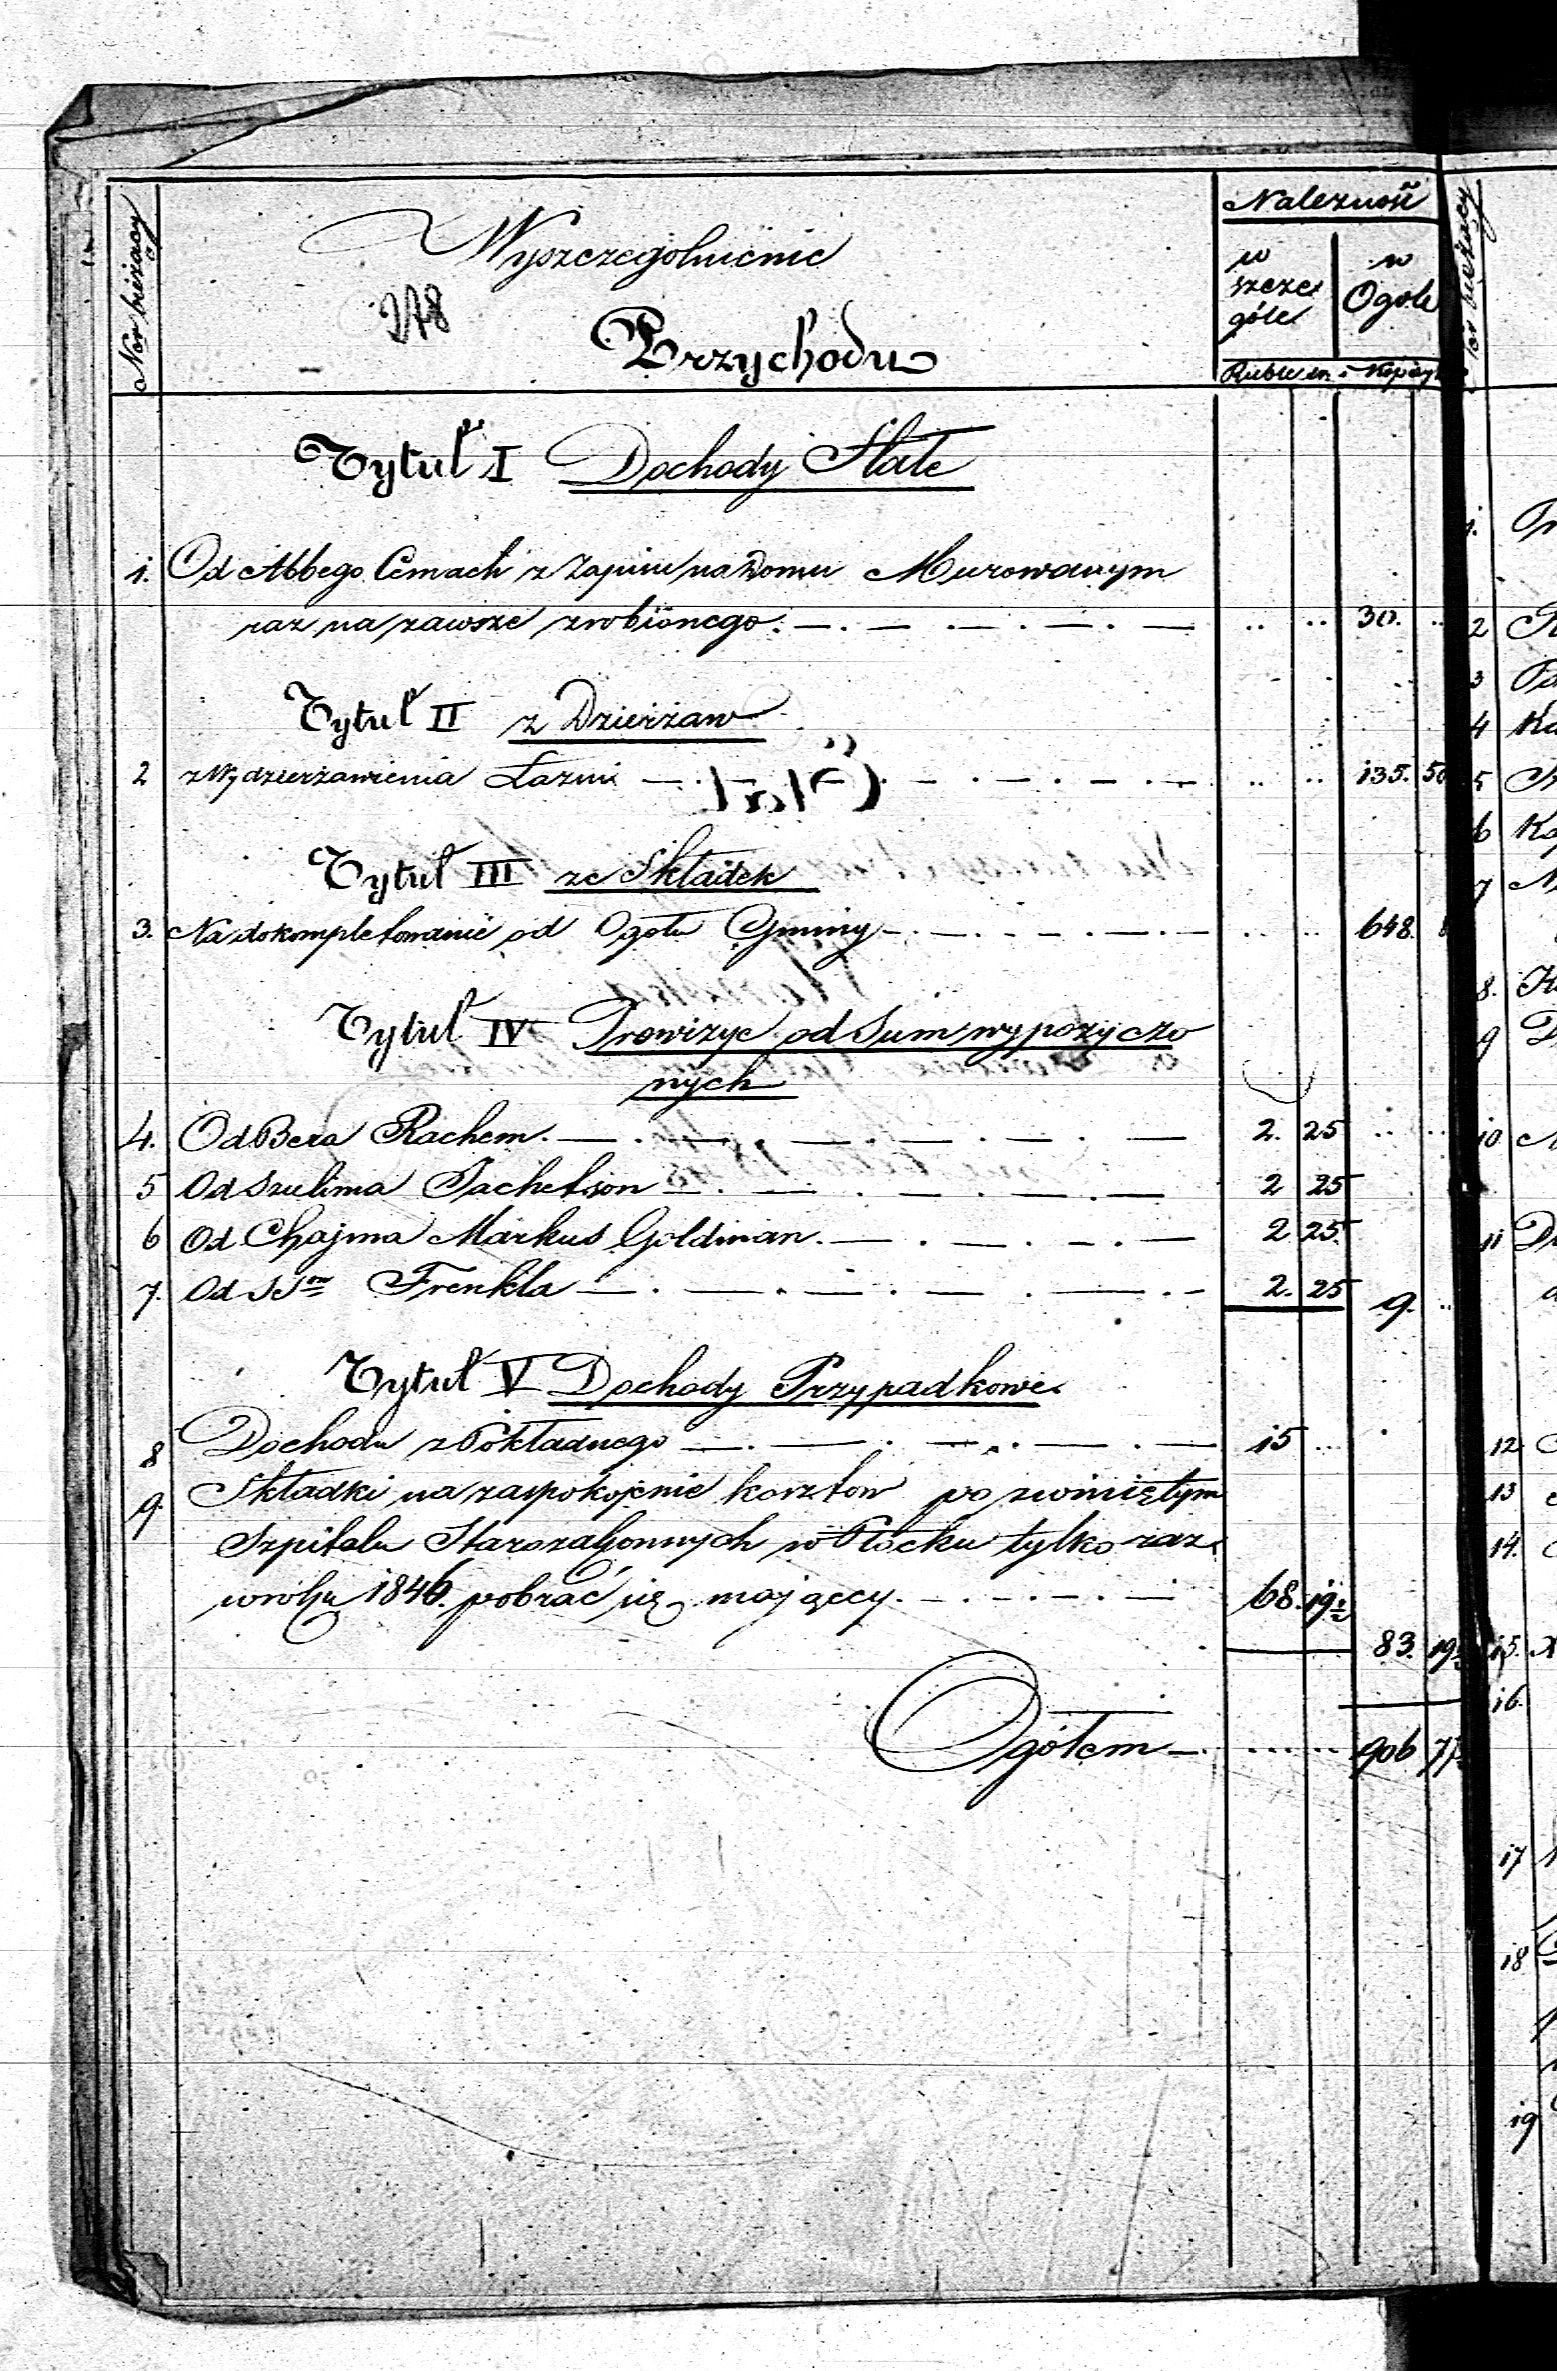 Nor bieżący
Wyszczegolnienie
278
Przychodu
Należność
w szcze góle
w Ogole
Tytuł I Dochody Stałe
1. Od Abbego Cemach z Zapisu na Domu Murowanym
raz na zawsze zrobionego 30.
Tytuł II z Dzierżaw
2 z Wydzierżawienia Łazni 135. 50
Tytuł III ze Składek
3. Na dokompletowanie od Ogołu Gminy 648.
Tytuł IV Prowizye od Sum wypozyczo
nych
4. Od Bera Rachem 2. 25
5 Od Szulima Jachetson 2 25
6 Od Chajma Markus Goldman 2 25
7. Od Frenkla 2. 25 9.
Tytuł V Dochody Przypadkowe
8 Dochodu z Pokładnego 15
9 Składki na zaspokojenie kosztow po zwiniętym
Szpitalu Starozakonnych w Płocku tylko raz
w roku 1846. pobrać się mający 68. 19
83. 19
Ogółem 906 77